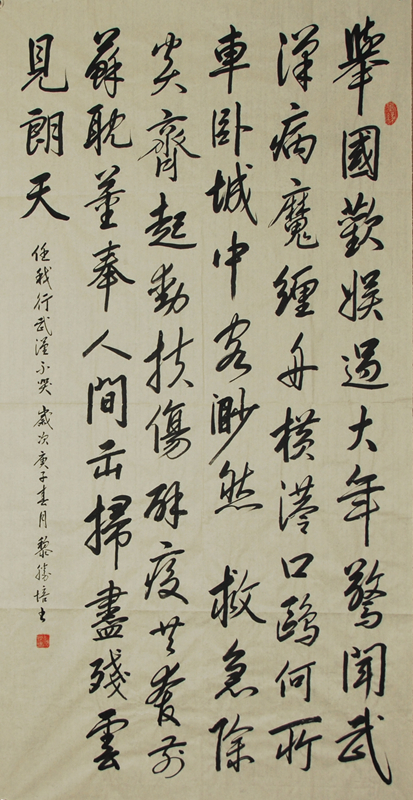 舉國歡娛過大年驚聞武
漢病魔纏舟橫港口鷗何所
車臥城中客渺然 救急除
災齊起動扶傷疫共前
蘇耽董奉人間掃盡殘雲
見朗天
任我行武漢不哭 歲次庚子春月 黎勝培書